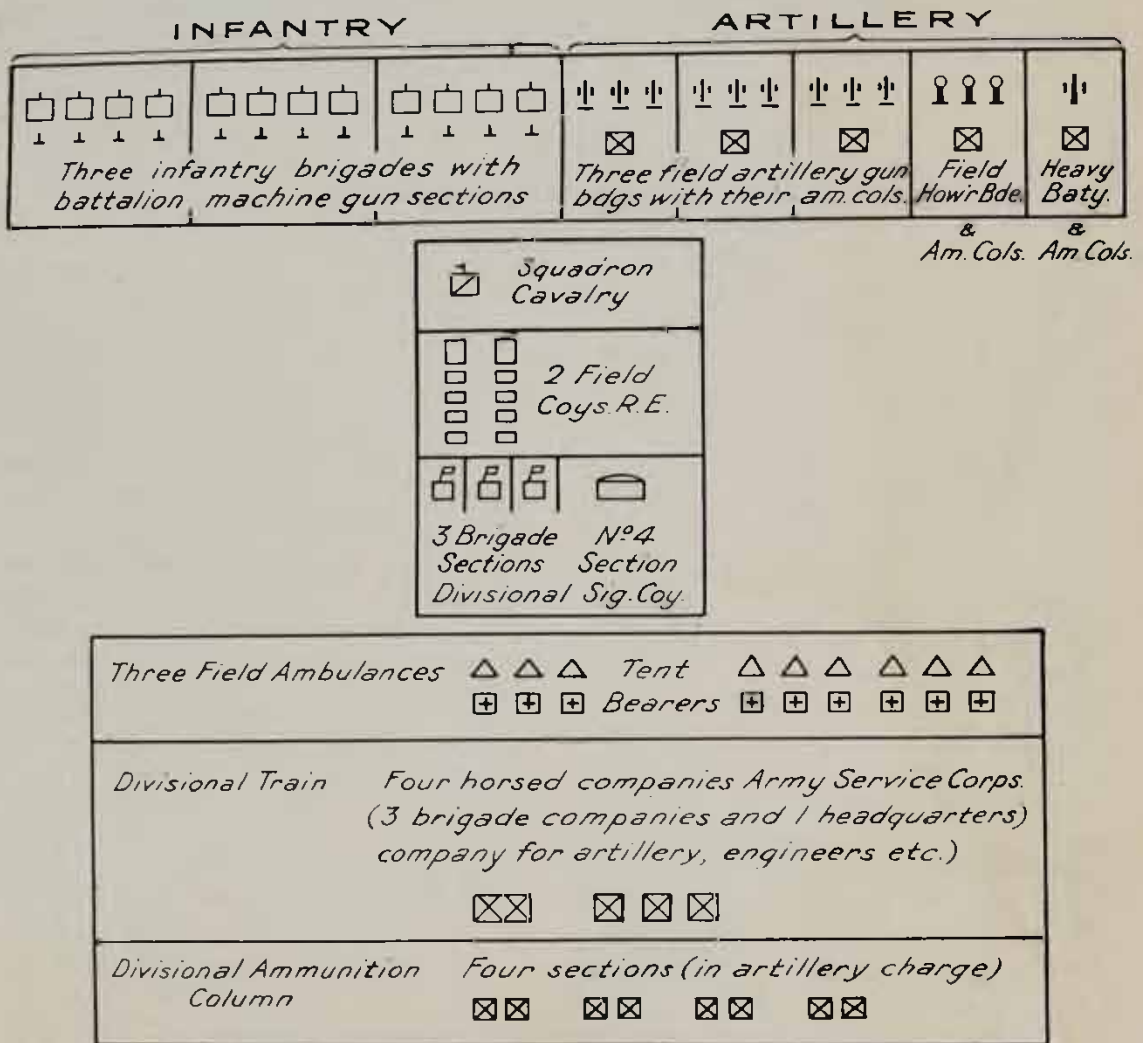 INFANTRY ARTILLERY
Three infantry brigades with
battalion machine gun sections
Three field artillery gun
bdgs with their am. cols.
Field
How'r Bde.
&
Am. Cols.
Heavy
Baty.
&
Am. Cols.
Squadron
Cavalry
2 Field
Coys. R.E.
3 Brigade Nº4
Sections Section
Divisional Sig. Coy.
Three Field Ambulances Tent
Bearers
Divisional Train Four horsed companies Army Service Corps.
(3 brigade companies and 1 headquarters)
company for artillery, engineers etc.)
Divisional Ammunition Four sections (in artillery charge)
Column